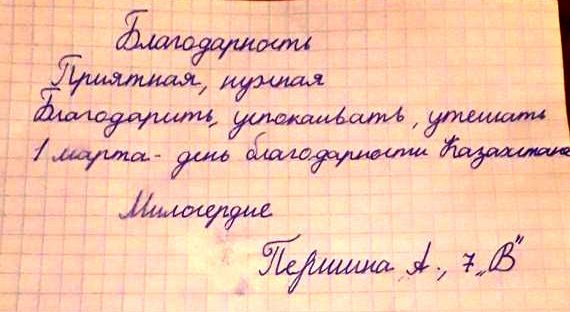 Благодарность
Приятная, нужная
Благодарить, успокаивать, утешать
1 марта - день благодарности Казахстана
Милосердие
Першина А., 7 „В"